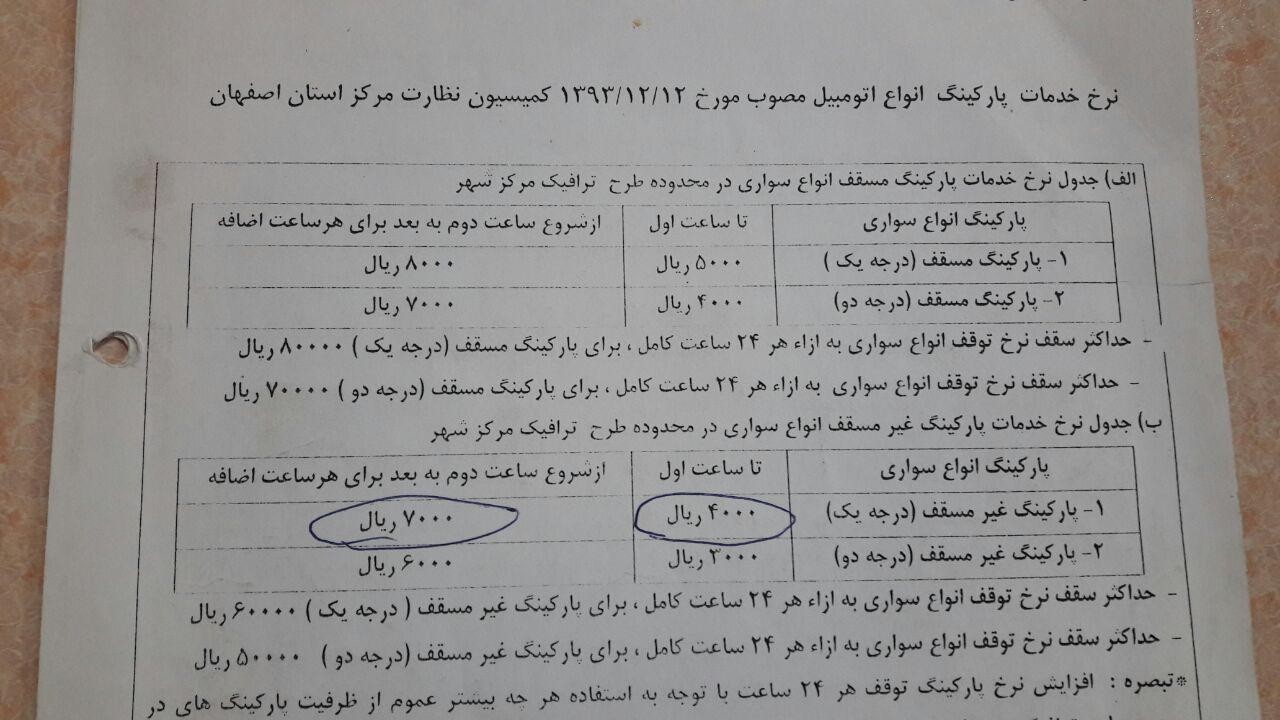 نرخ خدمات پارکینگ انواع اتومبیل مصوب مورخ ۱۳۹۳/۱۲/۱۲ کمیسیون نظارت مرکز استان اصفهان
الف) جدول نرخ خدمات پارکینگ مسقف انواع سواری در محدوده طرح ترافیک مرکز شهر
پارکینگ انواع سواری تا ساعت اول ازشروع ساعت دوم به بعد برای هرساعت اضافه
۱- پارکینگ مسقف (درجه یک ) ۵۰۰۰ ریال ۸۰۰۰ ریال
۲- پارکینگ مسقف (درجه دو) ۴۰۰۰ ریال ۷۰۰۰ ریال
- حداکثر سقف نرخ توقف انواع سواری به ازاء هر ۲۴ ساعت کامل ، برای پارکینگ مسقف (درجه یک ) ۸۰۰۰۰ ریال
- حداکثر سقف نرخ توقف انواع سواری به ازاء هر ۲۴ ساعت کامل ، برای پارکینگ مسقف (درجه دو ) ۷۰۰۰۰ ریال
ب) جدول نرخ خدمات پارکینگ غیر مسقف انواع سواری در محدوده طرح ترافیک مرکز شهر
پارکینگ انواع سواری تا ساعت اول ازشروع ساعت دوم به بعد برای هرساعت اضافه
۱- پارکینگ غیر مسقف (درجه یک) ۴۰۰۰ ریال ۷۰۰۰ ریال
۲- پارکینگ غیر مسقف (درجه دو) ۳۰۰۰ ریال ۶۰۰۰ ریال
- حداکثر سقف نرخ توقف انواع سواری به ازاء هر ۲۴ ساعت کامل ، برای پارکینگ غیر مسقف ( درجه یک ) ۶۰۰۰۰ ریال
- حداکثر سقف نرخ توقف انواع سواری به ازاء هر ۲۴ ساعت کامل ، برای پارکینگ غیر مسقف (درجه دو ) ۵۰۰۰۰ ریال
*تبصره : افزایش نرخ پارکینگ توقف هر ۲۴ ساعت با توجه به استفاده هر چه بیشتر عموم از ظرفیت پارکینگ های در